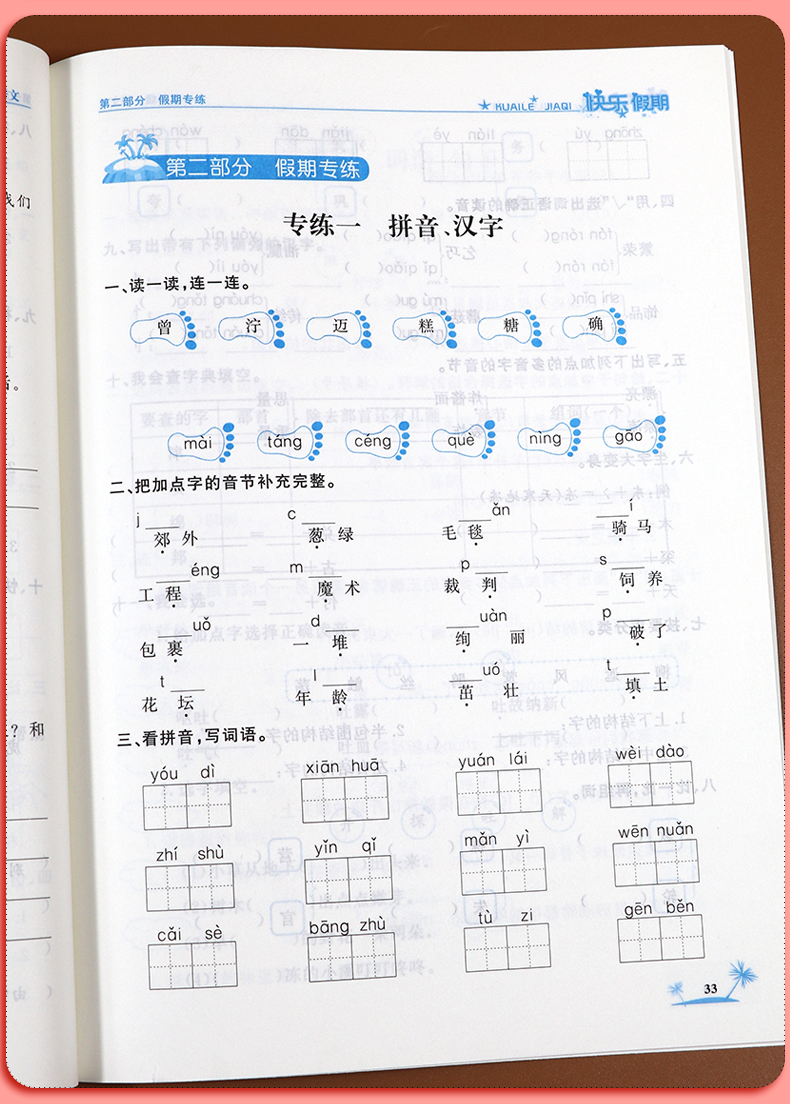 第二部分 假期专练
KUAILE JIAQI 快乐假期
第二部分 假期专练
专练一 拼音、汉字
一、读一读,连一连。
曾 泞 迈 糕 糖 确
mài táng céng què nìng gāo
二、把加点字的音节补充完整。
j____ c____ ____ǎn ____í
郊外 葱绿 毛毯 骑马
____éng m____ p____ s____
工程 魔术 裁判 饲养
____uǒ d____ ____uàn p____
包裹 一堆 绚丽 破了
t____ l____ ____uó t____
花坛 年龄 茁壮 填土
三、看拼音,写词语。
yóu dì xiān huā yuán lái wèi dào
zhí shù yǐn qǐ mǎn yì wēn nuǎn
cǎi sè bāng zhù tù zi gēn běn
33
我们
后。
? 和